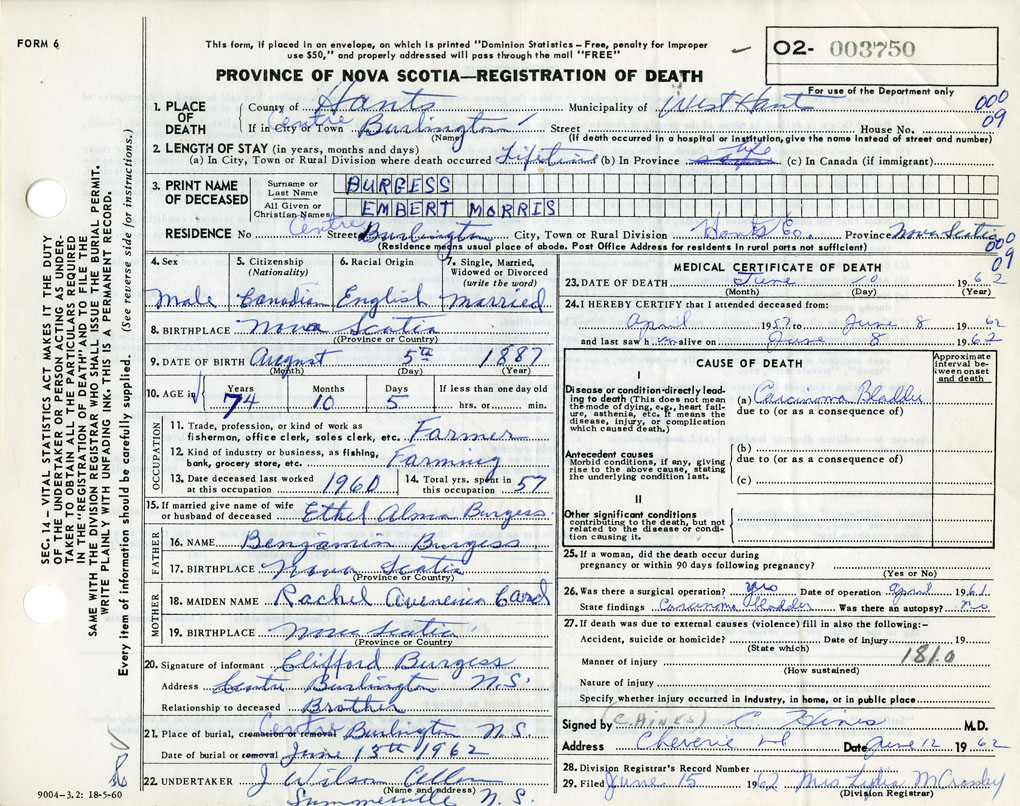 FORM 6
This form, if placed in an envelope, on which is printed "Dominion Statistics – Free, penalty for improper
use $50," and properly addressed will pass through the mail "FREE"
O2- 003750
For use of the Department only
PROVINCE OF NOVA SCOTIA—REGISTRATION OF DEATH
SEC. 14 – VITAL STATISTICS ACT MAKES IT THE DUTY
OF THE UNDERTAKER OR PERSON ACTING AS UNDER-
TAKER TO OBTAIN ALL THE PARTICULARS REQUIRED
IN THE "REGISTRATION OF DEATH" AND TO FILE THE
SAME WITH THE DIVISION REGISTRAR WHO SHALL ISSUE THE BURIAL PERMIT.
WRITE PLAINLY WITH UNFADING INK. THIS IS A PERMANENT RECORD.
Every item of information should be carefully supplied. (See reverse side for instructions.)
1. PLACE OF DEATH County of Hants Municipality of West Hants 000
If in City or Town Centre Burlington Street House No. 09
(Name) (If death occurred in a hospital or institution, give the name instead of street and number)
2. LENGTH OF STAY (in years, months and days)
(a) In City, Town or Rural Division where death occurred Lifetime (b) In Province life (c) In Canada (if immigrant)
3. PRINT NAME OF DECEASED Surname or Last Name BURGESS
All Given or Christian Names EMBERT MORRIS
RESIDENCE No Street Centre Burlington City, Town or Rural Division Hants Co. Province Nova Scotia
(Residence means usual place of abode. Post Office Address for residents in rural parts not sufficient)
000
09
4. Sex 5. Citizenship (Nationality) 6. Racial Origin 7. Single, Married, Widowed or Divorced (write the word)
Male Canadian English Married
8. BIRTHPLACE Nova Scotia
(Province or Country)
9. DATE OF BIRTH August 5th 1887
(Month) (Day) (Year)
10. AGE in Years Months Days If less than one day old
74 10 5 hrs. or min.
OCCUPATION
11. Trade, profession, or kind of work as
fisherman, office clerk, sales clerk, etc. Farmer
12. Kind of industry or business, as fishing,
bank, grocery store, etc. Farming
13. Date deceased last worked at this occupation 1960 14. Total yrs. spent in this occupation 57
15. If married give name of wife
or husband of deceased Ethel Alma Burgess
FATHER
16. NAME Benjamin Burgess
17. BIRTHPLACE Nova Scotia
(Province or Country)
MOTHER
18. MAIDEN NAME Rachel
19. BIRTHPLACE Nova Scotia
(Province or Country)
20. Signature of informant Clifford Burgess
Address Centre Burlington N.S.
Relationship to deceased Brother
21. Place of burial, cremation or removal Centre Burlington N.S.
Date of burial or removal June 13th 1962
22. UNDERTAKER J Wilson
(Name and address)
Summerville N.S.
9004–3.2: 18-5-60
MEDICAL CERTIFICATE OF DEATH
23. DATE OF DEATH June 10 1962
(Month) (Day) (Year)
24. I HEREBY CERTIFY that I attended deceased from:
April 1957 to June 8 1962
and last saw him alive on June 8 1962
CAUSE OF DEATH
Approximate interval between onset and death
I
Disease or condition directly lead-
ing to death (This does not mean
the mode of dying, e.g., heart failure, asthenia, etc. It means the
disease, injury, or complication
which caused death.)
(a) Carcinoma Bladder
due to (or as a consequence of)
Antecedent causes
Morbid conditions, if any, giving
rise to the above cause, stating
the underlying condition last.
(b)
due to (or as a consequence of)
(c)
II
Other significant conditions
contributing to the death, but not
related to the disease or condi-
tion causing it.
25. If a woman, did the death occur during
pregnancy or within 90 days following pregnancy?
(Yes or No)
26. Was there a surgical operation? yes Date of operation April 1961
State findings Carcinoma Bladder Was there an autopsy? no
27. If death was due to external causes (violence) fill in also the following:–
Accident, suicide or homicide? Date of injury 19
(State which)
Manner of injury 181.0
(How sustained)
Nature of injury
Specify whether injury occurred in industry, in home, or in public place
Signed by (C. HINES) C. Hines M.D.
Address Cheverie Date June 12 1962
28. Division Registrar's Record Number
29. Filed June 15 1962 Mrs Lydia McCrossby
(Division Registrar)